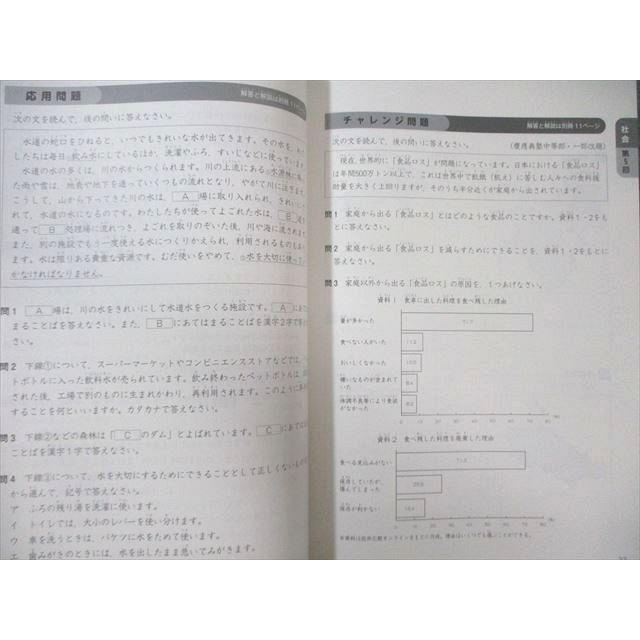 応用問題
解答と解説は別冊11ページ
次の文を読んで、後の問いに答えなさい。
水道の蛇口をひねると、いつでもきれいな水が出てきます。その水を、わ
したちは毎日、飲み水にしているほか、洗濯やふろ、すいじなどに使っています
水道の水の多くは、川の水からつくられます。川の上流にある②水源林に降っ
た雨や雪は、地表や地下を通っていくつもの流れとなり、やがて川に注ぎま
こうして、山から下ってきた川の水は、 A 場に取り入れられ、きれいに
れて、水道の水になるのです。わたしたちが使ってよごれた水は、 B
通って B 処理場に流れつき、よごれを取りのぞいた後、川や海に流されま
また、別の施設でもう一度使える水につくりかえられ、利用されるものもあり
ます。水は限りある貴重な資源です。むだ使いをやめて、③水を大切に使って
かなければなりません。
問1 A 場は、川の水をきれいにして水道水をつくる施設です。 A にあ
まることばを答えなさい。また、 B にあてはまることばを漢字2字で答
問2 下線①について、スーパーマーケットやコンビニエンスストアなどでは、
トボトルに入った飲料水が売られています。飲み終わったペットボトルは、
された後、工場で別のものに生まれかわり、再利用されます。このように
することを何といいますか。カタカナで答えなさい。
問3 下線②などの森林は「 C のダム」とよばれています。 C にあて
ことばを漢字1字で答えなさい。
問4 下線③について、水を大切にするためにできることとして正しくないもの
から選んで、記号で答えなさい。
ア ふろの残り湯を洗濯に使います。
イ トイレでは、大小のレバーを使い分けます。
ウ 車を洗うときは、バケツに水をためて使います。
エ 歯みがきのときには、水を出したまま思いてみがきます。
チャレンジ問題
解答と解説は別冊11ページ
次の文を読んで、後の問いに答えなさい。
(慶應義塾中等部・一部改題)
現在、世界的に「食品ロス」が問題になっています。日本における「食品ロス」
は年間500万トン以上で、これは世界中で飢餓(飢え)に苦しむ人々への食料援
助量を大きく上回りますが、そのうち半分近くが家庭から出されています。
問1 家庭から出る「食品ロス」とはどのような食品のことですか。資料1・2をも
とに答えなさい。
問2 家庭から出る「食品ロス」を減らすためにできることを、資料1・2をもとに
答えなさい。
問3 家庭以外から出る「食品ロス」の原因を、1つあげなさい。
資料1 食卓に出した料理を食べ残した理由
量が多かった
食べない人がいた
おいしくなかった
嫌いなものが含まれて
いた
体調不良等により食欲
がなかった
0 10 20 30 40 50 60 70 80 (%)
資料2 食べ残した料理を廃棄した理由
食べる見込みがない
保存していたが、
傷んでしまった
保存が利かない
0 10 20 30 40 50 60 70 80 (%)
社会
第5回